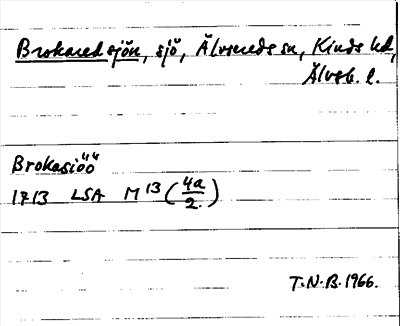 Brokared sjön, sjö, Älvsereds sn, Kinds hd,
Älvsb. l.
Brokasiöö
1713 LSA M 13 (4a/2)
T.N.B. 1966.